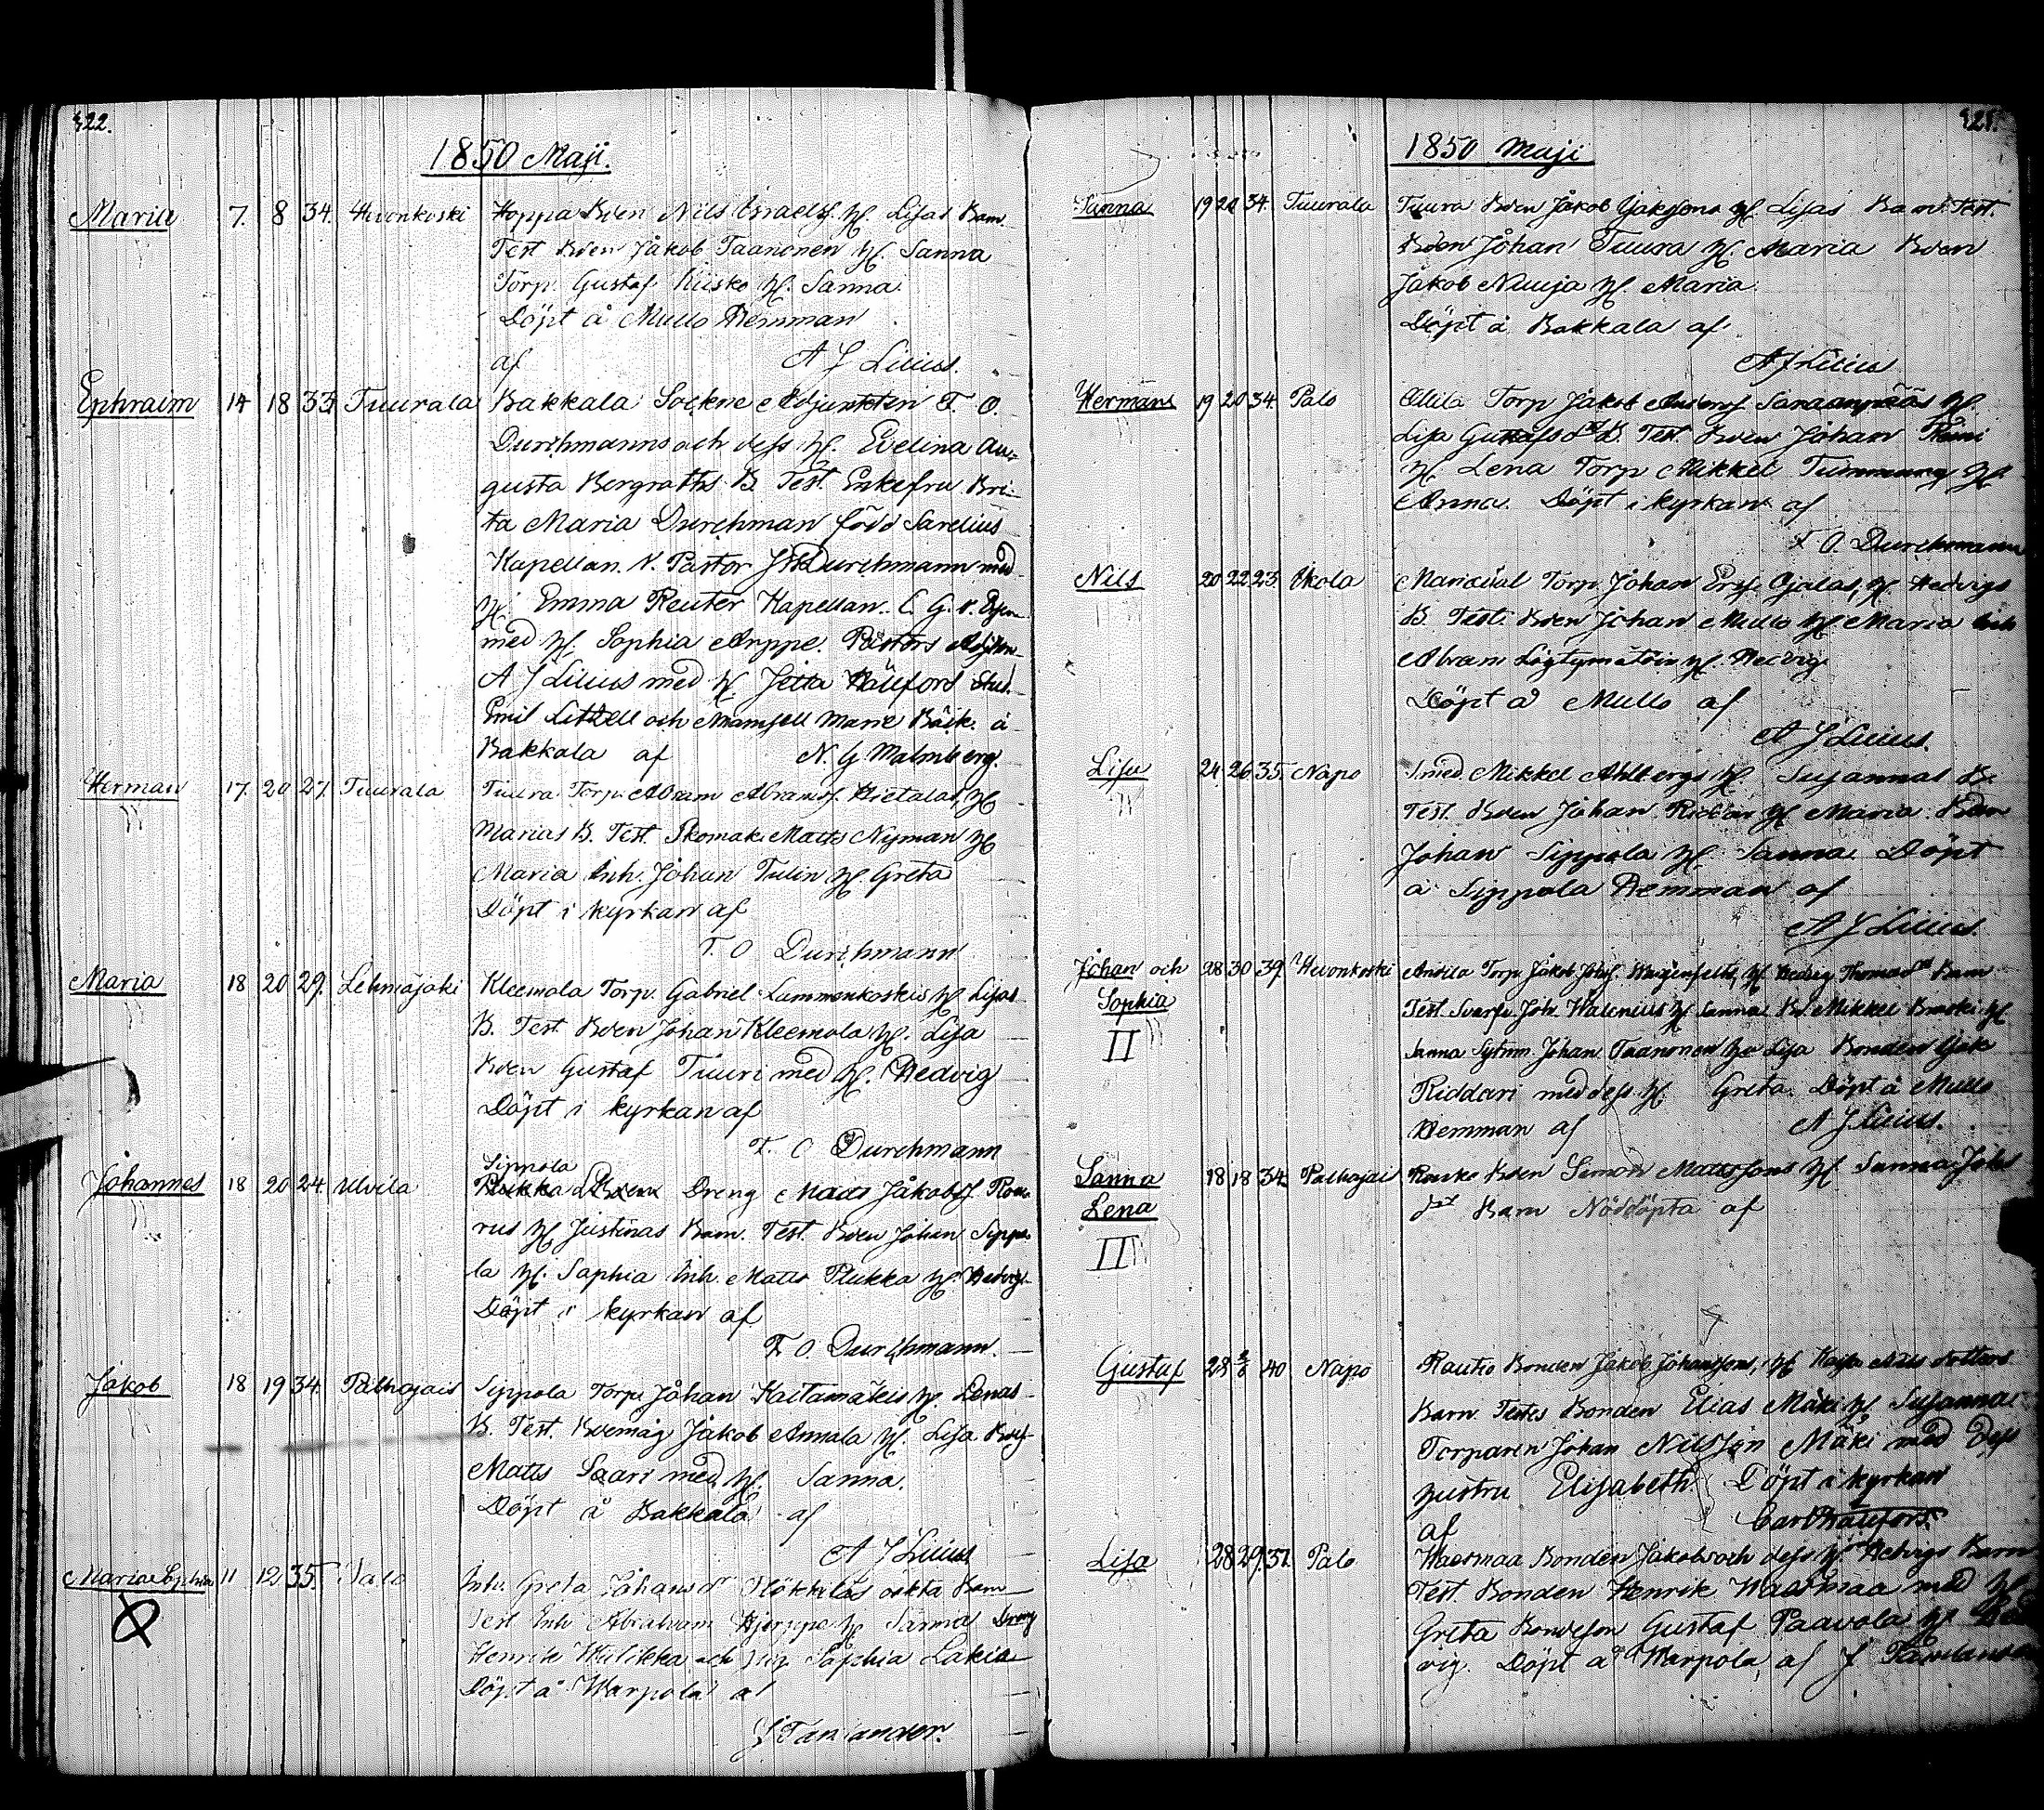 322.
1850 Maji.
Maria 7. 8 34. Hevonkoski Hoppa Bden Nils Israelss. H. Lisas Barn.
Test Bden Jakob Taanonen H. Sanna
Torp. Gustaf Kiisko H. Sanna
Döpt å Mullo Hemman
af A J Lilius.
Ephraim 14 18 33 Tuurala Bakkala Sockne Adjunkten F. O.
Durchmanns och dess H. Evelina Au-
gusta Bergroths B. Test. Enkefru Bri-
ta Maria Durchman född Sarelius
Kapellan. V. Pastor Durchmann med
H. Emma Reuter Kapellan. C. G. v.
med H. Sophia Arppe. Pastors Adjun
A J Lilius med H. Jetta Wäliford Stud.
Emil Litzell och Mamsell Marie Bäck. å
Bakkala af N. G Malmberg.
Herman 17. 20 27. Tuurala Tuura Torp. Abram Abramss. Hietalas, H
Marias B. Test. Skomak. Matts Nyman H
Maria Inh. Johan Tulin H. Greta
Döpt i kyrkan af
F. O Durchmann
Maria 18 20 29. Lehmäjoki Kleemola Torp. Gabriel Lammenkoskis H Lisas
B. Test. Bden Johan Kleemola H. Lisa
Bden Gustaf Tuuri med H. Hedvig
Döpt i kyrkan af
F. O Durchmann
Sippola
Johannes 18 20 24. Ulvila Dreng Matts Jakobss.
rus H Justinas Barn. Test. Bden Johan Sippo
la H. Sophia Inh. Matts Plukka H. Hedvig
Döpt i kyrkan af
F. O. Durchmann.
Jakob 18 19 34. Palhojais Sippola Torp. Johan Kaitamäkis H. Lenas
B. Test. Bdemåg Jakob Annala H. Lisa
Matts Saari med H. Sanna.
Döpt å Bakkala af
A J Lilius
Maria Sophia 11 12 35. Palo Inh. Greta Johansdr Plökkilas oäkta Barn
Test Inh Abraham Hjerppe H. Sanna Dreng
Henrik Wilikka och pig. Sophia Lakia
Döpt å Warpola af
J Tanlander.
321.
1850 Maji
Sanna 19 20 34. Tuurala Tuura Bden Jakob Jakssons H. Lisas Barn. Test.
Bden Johan Tuura H. Maria Bden
Jakob Nuuja H. Maria.
Döpt å Bakkala af
A J Lilius
Herman 19 20 34. Palo Ollila Torp Jakob Anderss Saraanpääs H.
Lisa Gustafs dr B. Test. Bden Johan
H. Lena Torp Mikkel H.
Anna. Döpt i kyrkan af
F O. Durchmann
Nils 20 22 23 Ikola Torp. Johan Ersss. Ojalas, H. Hedvigs
B. Test. Bden Johan Mullo H Maria Inh
Abram H. Hedvig.
Döpt å Mullo af
A J Lilius.
Lisa 24. 26 35. Napo Smed. Mikkel Ahlbergs H. Susannas B.
Test. Bden Johan H Maria Bden
Johan Sippola H. Sanna. Döpt
å Sippola Hemman af
A J Lilius.
Johan och
Sophia
II 28 30 39. Hevonkoski Anttila Torp. Jakob Hedvig Thomasdr Barn
Test. Svarfv. Joh. Walenius H Sanna Bd Mikkel H.
Sanna Johan Taanonen H Lisa Bonden Jak
Riddari med dess H. Greta. Döpt å Mullo
Hemman af A J Lilius.
Sanna
Lena
II 18 18 34. Palhojais Bden Simon Mattssons H. Sanna Johs
dr Barn Nöddöpta af
Gustaf 28 2/6 40 Napo Rautio Bonden Jakob Johanssons, H. Kajsa Nils dotters
Barn. Testes Bonden Elias Mäki H. Susanna
Torparen Johan Nilsson Mäki med dess
hustru Elisabeth. Döpt i kyrkan
af
Lisa 28 29. 37. Palo Waarmaa Bonden Jakobs och dess H. Hedvigs Barn
Test. Bonden Henrik Waarmaa med H.
Greta Bondeson Gustaf Paavola H. Hed
vig. Döpt å Warpola, af J